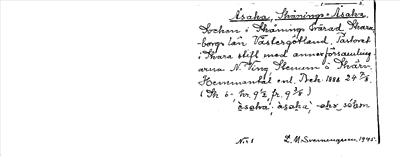 Åsaka, Skånings-Åsaka,
Socken i Skånings härad Skara-
borgs län Västergötland. Pastorat
i Skara stift med annexförsamling
arna N. Ving Stenum o Skärv.
Hemmantal enl.
(Sk ö- hr. 9
åsaka, åsaka,
N:o 1 L. M. Svenungsson, 1945.